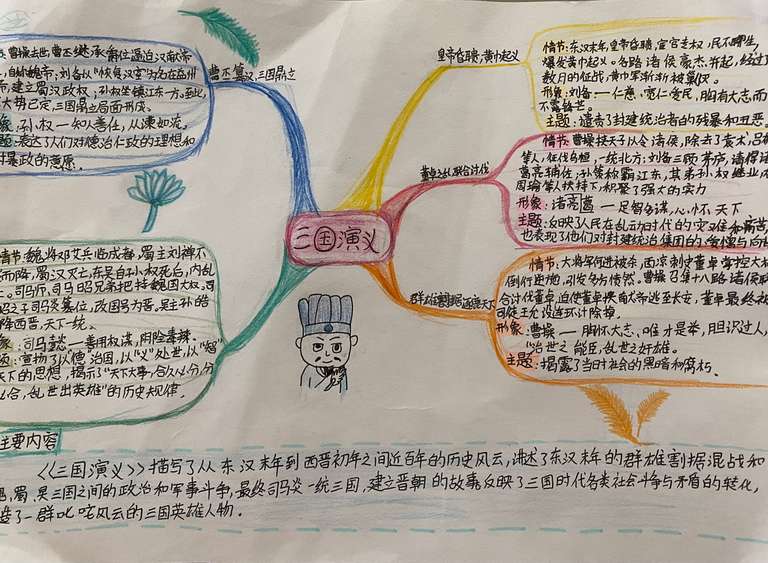 三国演义
皇帝昏聩,黄巾起义
情节:东汉末年,皇帝昏聩,宦官专权,民不聊生,
爆发黄巾起义。各路诸侯豪杰并起,经过
数月的征战,黄巾军渐渐被剿灭。
形象:刘备——仁慈、宽仁爱民,胸有大志而
不露锋芒。
主题:谴责了封建统治者的残暴和丑恶
董卓之乱,联合讨伐
情节:曹操挟天子以令诸侯,除去了袁术,吕布
等人,征伐乌桓,一统北方;刘备三顾茅庐,请得诸
葛亮辅佐;孙策称霸江东,其弟孙权继业
周瑜等人扶持下,积聚了强大的实力
形象:诸葛亮——足智多谋,心怀天下
主题:反映了人民在乱动时代的灾难和痛苦
也表现了他们对封建统治集团的
群雄割据
情节:大将军何进被杀,西凉刺史董卓掌控大权
倒行逆施,引发多方愤然。曹操召集十八路诸侯联
合讨伐董卓,迫使董卓挟商大爷逃至长安,董卓最终被
司徒王允设连环计除掉。
形象:曹操——胸怀大志、唯才是举,胆识过人,
“治世之能臣,乱世之奸雄。
主题:揭露了当时社会的黑暗和腐朽。
曹丕篡汉,三国鼎立
曹操去世,曹丕继承爵位逼迫汉献帝
自称魏帝;刘备以“恢复汉室”为名在益州
建立蜀汉政权;孙权坐镇江东一方。至此,
大势已定,三国鼎立局面形成。
象:孙权—知人善任,从谏如流。
题:表达了人们对德治仁政的理想和
对暴政的憎恶。
情节:魏将邓艾兵临成都,蜀主刘禅不
而降,蜀汉灭亡;东吴自孙权死后,内乱
司马师、司马昭兄弟把持魏国大权,司
之子司马炎篡位,改国号为晋,吴主孙皓
降西晋,天下一统。
象:司马懿—善用权谋,阴险毒辣。
题:宣扬了以“德”治国,以“义”处世,以“智”
天下的思想,揭示了“天下大事,合久必分,分
久必合,乱世出英雄”的历史规律。
主要内容
《《三国演义》》描写了从东汉末年到西晋初年之间近百年的历史风云,讲述了东汉末年的群雄割据混战和
魏,蜀,吴三国之间的政治和军事斗争,最终司马炎一统三国,建立晋朝的故事,反映了三国时代各类社会斗争与矛盾的转化,
造了一群叱咤风云的三国英雄人物.